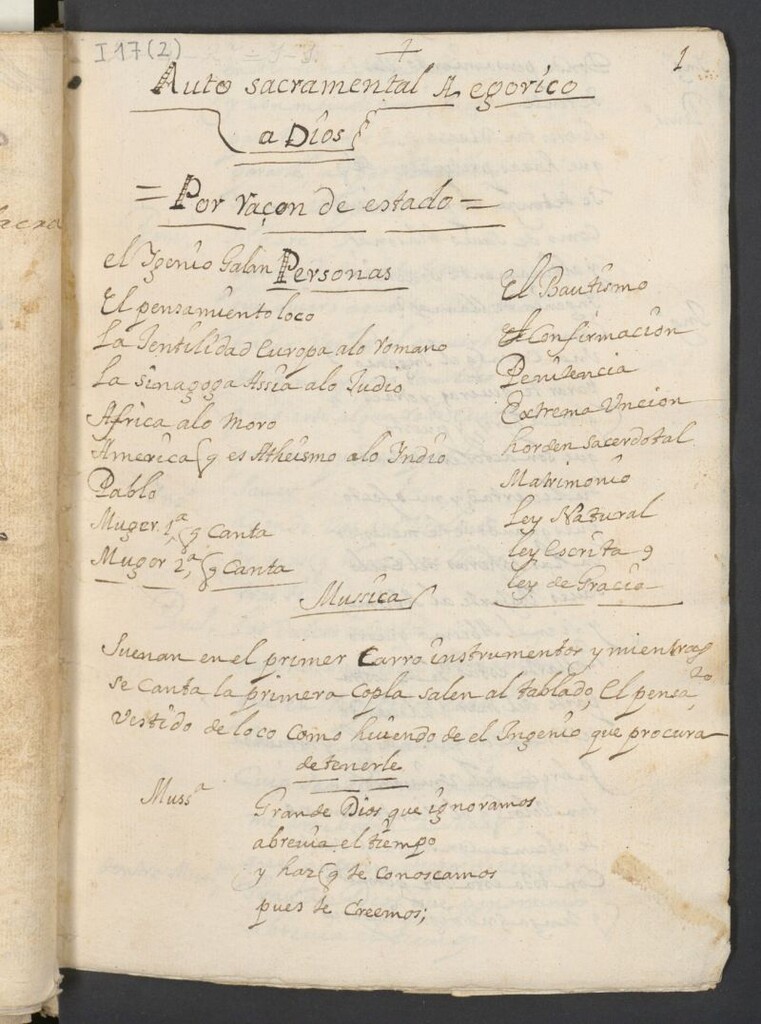 I 17(2)
1
Auto sacramental Alegorico
a Dios
= Por raçon de estado =
Personas
el Igenio Galan
El pensamiento loco
La Jentilidad Europa alo romano
La Sinagoga Assia alo Judio
Africa alo Moro
America q es Atheismo alo Indio
Pablo
Muger 1ª, q Canta
Muger 2ª, q Canta
El Bautismo
Confirmacion
Penitencia
Extrema Uncion
horden sacerdotal
Matrimonio
Ley Natural
ley Escrita y
ley de Gracia
Mussica
Suenan en el primer Carro instrumentos y mientras
se Canta la primera Copla salen al tablado, El pensa.to
vestido de loco Como huiendo de el Ingenio que procura
detenerle
Mussª
Grande Dios que ignoramos
abrevia el tiempo
y haz q te conoscamos
pues te Creemos;